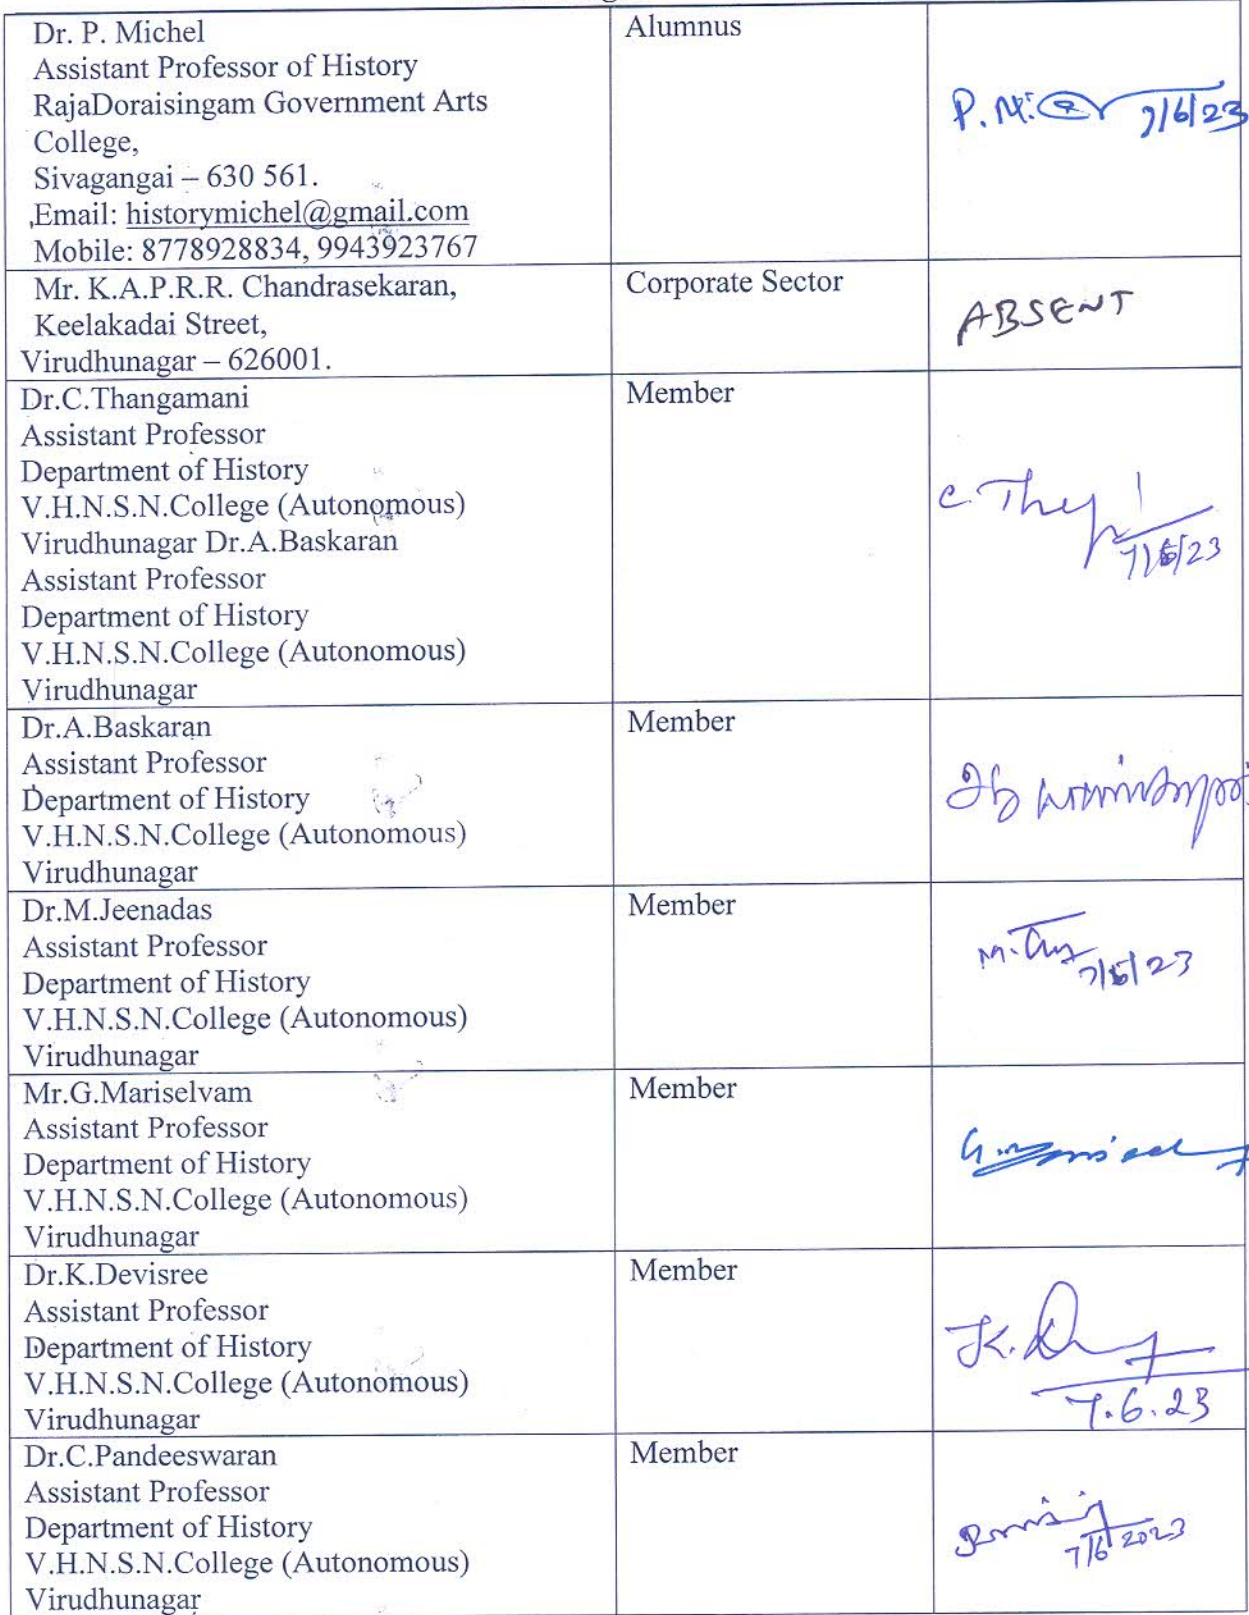 Dr. P. Michel
Assistant Professor of History
RajaDoraisingam Government Arts
College,
Sivagangai – 630 561.
Email: historymichel@gmail.com
Mobile: 8778928834, 9943923767
Alumnus
7/6/23
Mr. K.A.P.R.R. Chandrasekaran,
Keelakadai Street,
Virudhunagar – 626001.
Corporate Sector
ABSENT
Dr.C.Thangamani
Assistant Professor
Department of History
V.H.N.S.N.College (Autonomous)
Virudhunagar Dr.A.Baskaran
Assistant Professor
Department of History
V.H.N.S.N.College (Autonomous)
Virudhunagar
Member
7/6/23
Dr.A.Baskaran
Assistant Professor
Department of History
V.H.N.S.N.College (Autonomous)
Virudhunagar
Member
Dr.M.Jeenadas
Assistant Professor
Department of History
V.H.N.S.N.College (Autonomous)
Virudhunagar
Member
7/6/23
Mr.G.Mariselvam
Assistant Professor
Department of History
V.H.N.S.N.College (Autonomous)
Virudhunagar
Member
Dr.K.Devisree
Assistant Professor
Department of History
V.H.N.S.N.College (Autonomous)
Virudhunagar
Member
7.6.23
Dr.C.Pandeeswaran
Assistant Professor
Department of History
V.H.N.S.N.College (Autonomous)
Virudhunagar
Member
7/6 2023